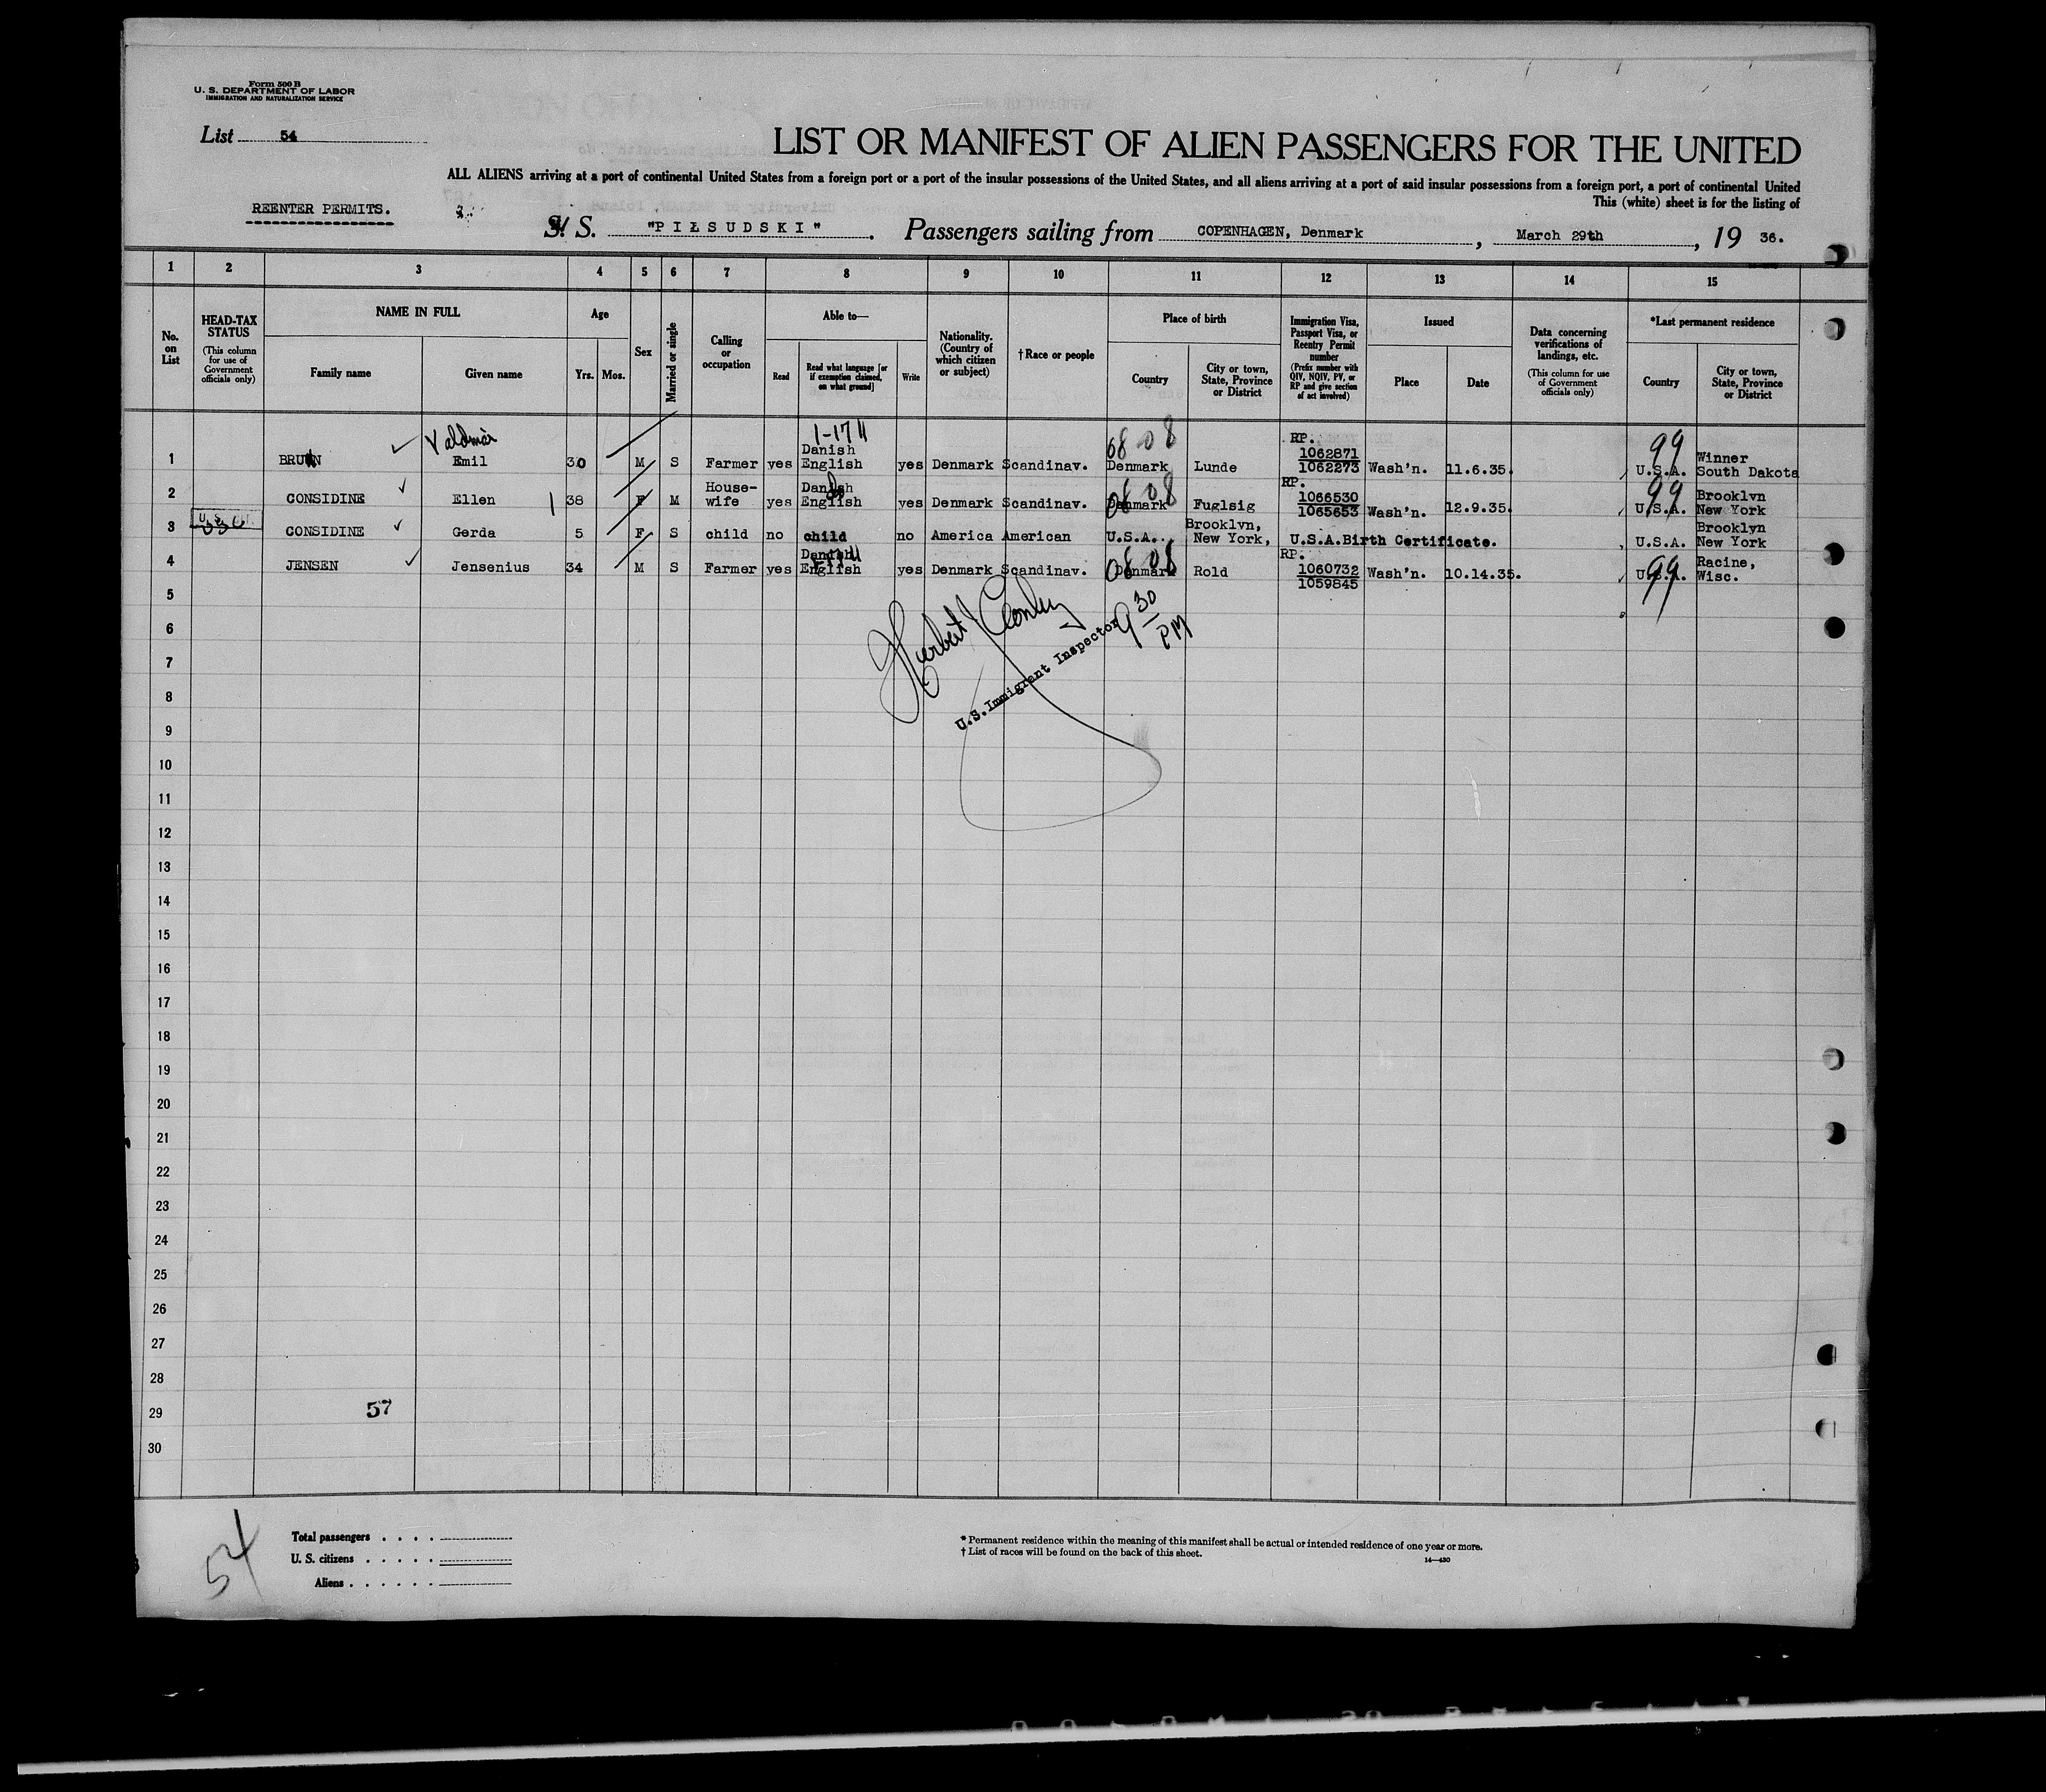 Form 500 B
U. S. DEPARTMENT OF LABOR
IMMIGRATION AND NATURALIZATION SERVICE
List 54
LIST OR MANIFEST OF ALIEN PASSENGERS FOR THE UNITED
ALL ALIENS arriving at a port of continental United States from a foreign port or a port of the insular possessions of the United States, and all aliens arriving at a port of said insular possessions from a foreign port, a port of continental United
This (white) sheet is for the listing of
REENTER PERMITS.
S. S. "PIŁSUDSKI". Passengers sailing from COPENHAGEN, Denmark, March 29th, 19 36.
1 2 3 4 5 6 7 8 9 10 11 12 13 14 15
No. on List
HEAD-TAX STATUS (This column for use of Government officials only)
NAME IN FULL
Family name
Given name
Age
Yrs. Mos.
Sex
Married or single
Calling or occupation
Able to—
Read
Read what language [or if exemption claimed, on what ground]
Write
Nationality. (Country of which citizen or subject)
† Race or people
Place of birth
Country
City or town, State, Province or District
Immigration Visa, Passport Visa, or Reentry Permit number (Prefix number with QIV, NQIV, PV, or RP and give section of act involved)
Issued
Place
Date
Data concerning verifications of landings, etc. (This column for use of Government officials only)
*Last permanent residence
Country
City or town, State, Province or District
1 BRUUN Valdmar Emil 30 M S Farmer yes 1-17 Danish English yes Denmark Scandinav. 0808 Denmark Lunde RP. 1062871 1062273 Wash'n. 11.6.35. 99 U.S.A. Winner South Dakota
2 CONSIDINE Ellen 38 F M House-wife yes Danish English yes Denmark Scandinav. 0808 Denmark Fuglsig RP. 1066530 1065653 Wash'n. 12.9.35. 99 U.S.A. Brooklyn New York
3 CONSIDINE Gerda 5 F S child no child no America American U.S.A. Brooklyn, New York, U.S.A.Birth Certificate. U.S.A. Brooklyn New York
4 JENSEN Jensenius 34 M S Farmer yes Danish English yes Denmark Scandinav. 0808 Denmark Rold RP. 1060732 1059845 Wash'n. 10.14.35. 99 U.S.A. Racine, Wisc.
5
6
Herbert
9 30 PM
U.S.Immigrant Inspector
7
8
9
10
11
12
13
14
15
16
17
18
19
20
21
22
23
24
25
26
27
28
29 57
30
54
Total passengers . . . .
U. S. citizens . . . . .
Aliens . . . . . .
* Permanent residence within the meaning of this manifest shall be actual or intended residence of one year or more.
† List of races will be found on the back of this sheet.
14—430